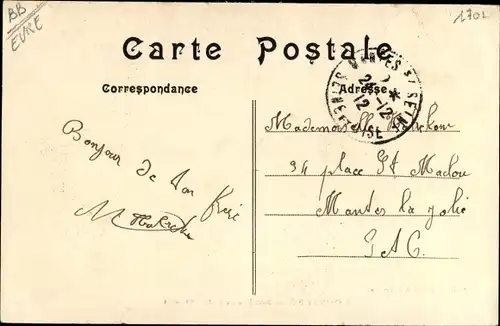 BB
EURE
1702
Carte Postale
Correspondance
Adresse
MANTES S/ SEINE
24-12
12
SEINE-ET-OISE
Bonjour de ton frère
Mademoiselle
34 place St Maclou
Mantes la Jolie